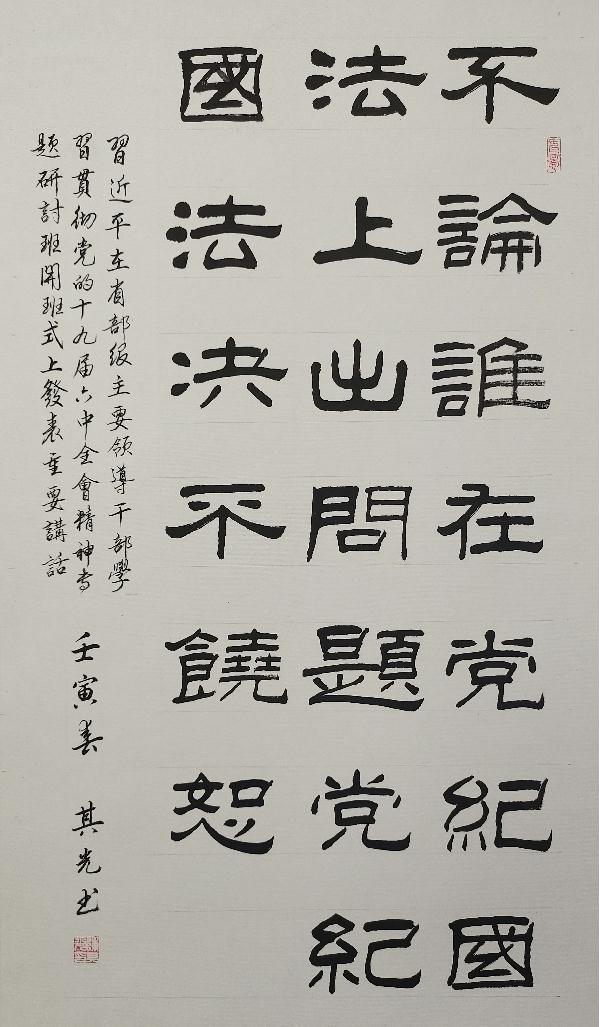 不論誰在党紀國
法上出問題党紀
國法决不饒恕
習近平在省部级主要領導干部學
習貫彻党的十九届六中全會精神专
题研討班開班式上發表重要講話
壬寅春 其光书